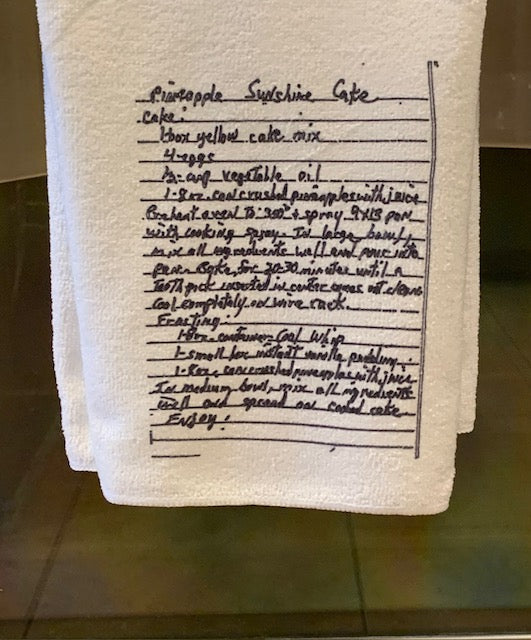 Pineapple Sunshine Cake
Cake:
1-box yellow cake mix
4-eggs
1/2-cup vegetable oil
1-8oz. can crushed pineapples with juice
Preheat oven to 350° + spray 9x13 pan
with cooking spray. In large bowl,
mix all ingredients well and pour into
pan. Bake for 20-30 minutes until a
toothpick inserted in center comes out clean.
Cool completely on wire rack.
Frosting:
container Cool Whip
1-small box instant vanilla pudding
1-8oz. can crushed pineapples with juice
In medium bowl, mix all ingredients
well and spread on cooled cake
Enjoy!